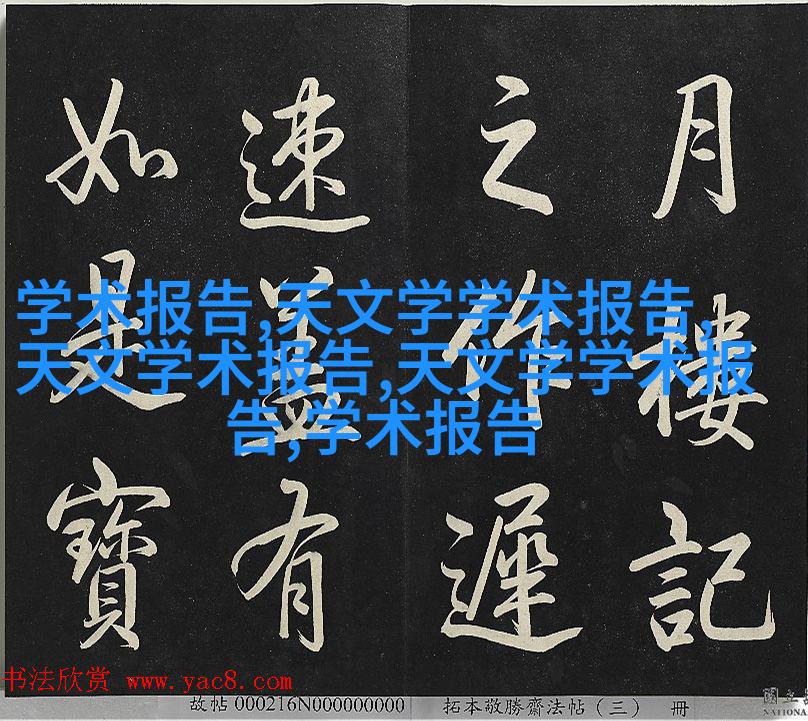 月樓記
之作遲
速蓋有
如是寶
学术报告,天文学学术报告,
天文学术报告,天文学学术报
告,学术报告
书法欣赏 www.yac8.com
故帖 000216N000000000 拓本敬勝齋法帖（三） 册
國立
NATIONA